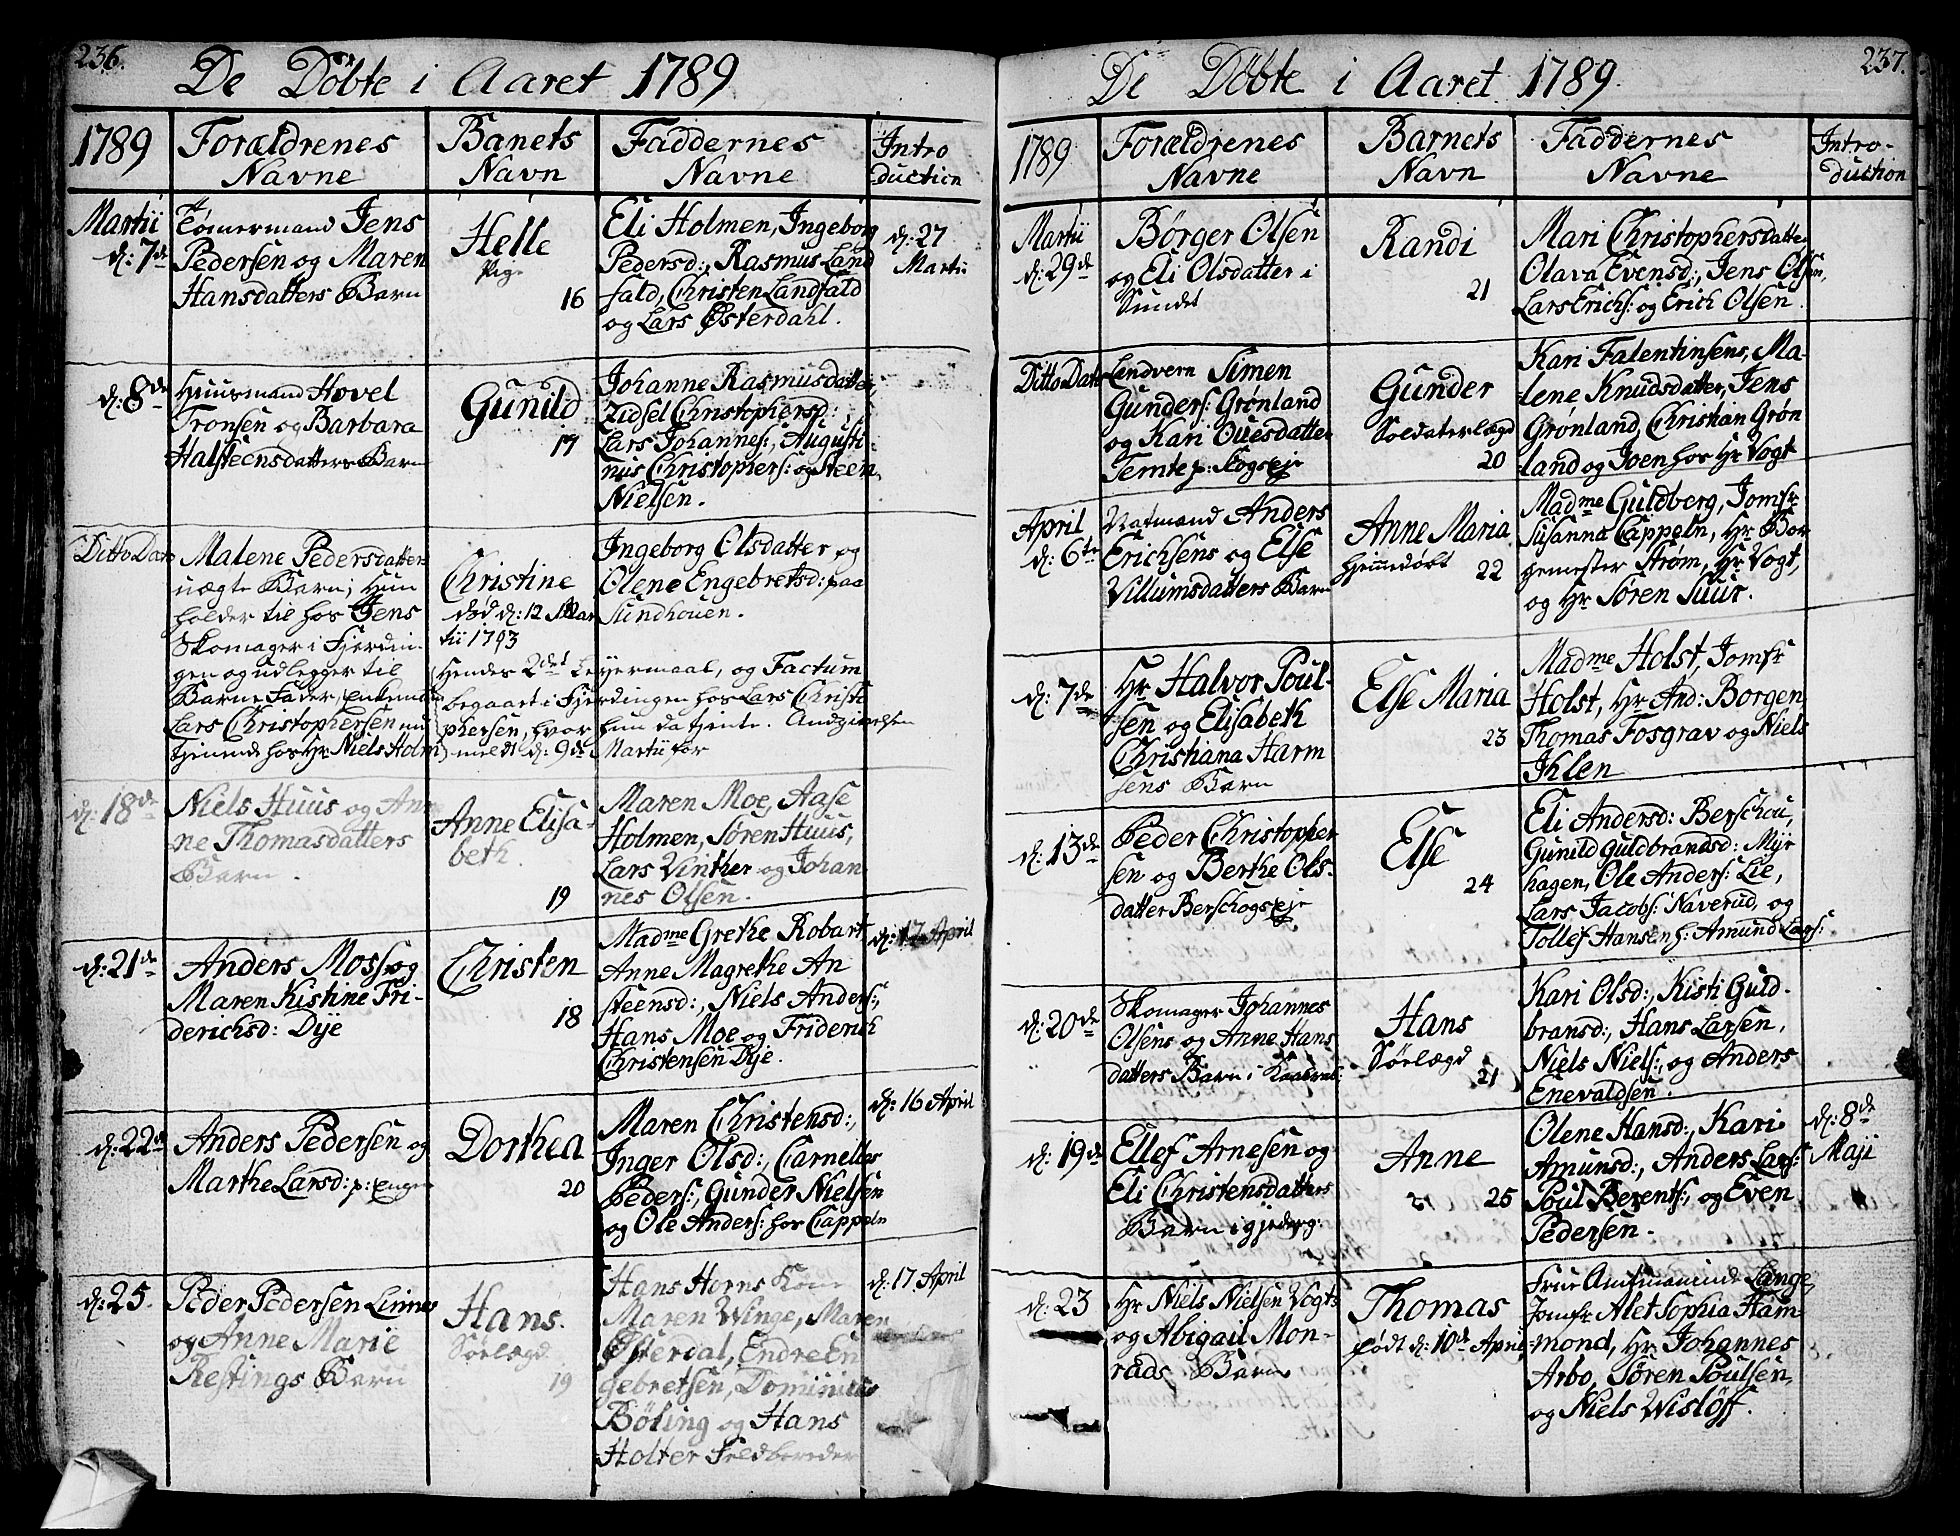 236.
De Døbte i Aaret 1789
1789
Forældrenes
Navne
Banets
Navn
Faddernes
Navne
Intro
duction
Martii
d: 7de
Tømermand Jens
Pedersen og Maren
Hansdatters Barn
Helle
Pige
16
Eli Holmen, Ingeborg
Pedersd:, Rasmus Land
fald, Christen Landfald
og Lars Østerdahl.
d: 27
Martii
d: 8de
Huusmand Hovel
Tronsen og Barbara
Halsteensdatters Barn
Gunild
17
Johanne Rasmusdatter,
Zidsel Christophersd:
Lars Johannes:, Augusti
nus Christophers: og Steen
Nielsen.
Ditto Dato
Malene Pedersdatters
uægte Barn; Hun
holder til hos Jens
Skomager i Fjerdin-
gen og udlegger til
Barne Fader, Enkemand
Lars Christophersen nu
tjenende hos Hr Niels Holm
Christine
død d: 12 Mar
tii 1793
Hendes 2det Leyermaal, og Factum
begaaet i Fjerdingen hos Lars Christo
phersen, hvor hun da tjente. Andgivelsen
meldt d: 9de Martii før
Ingeborg Olsdatter og
Olene Engebretsd: paa
Sundhouen.
d: 18de
Niels Huus og An
ne Thomasdatters
Barn.
Anne Elisa-
beth.
19
Maren Moe, Aase
Holmen, Søren Huus,
Lars Vinther og Johan
nes Olsen.
d: 21de
Anders Moss og
Maren Kistine Fri-
derichsd: Dye
Christen
18
Madme Grethe Robart
Anne Magrethe An
steensd:, Niels Anders:,
Hans Moe og Friderich
Christensen Dye.
d: 17 April
d: 22de
Anders Pedersen og
Marthe Larsd: p: Engen
Dorthea
20
Maren Christensd:,
Inger Olsd:, Carnelius
Peders:, Gunder Nielsen
og Ole Anders: hos Cappeln
d: 16 April
d: 25.
Peder Pedersen Linnes
og Anne Marie
Restings Barn
Hans.
Søelægd
19
Hans Horns Kone
Maren Winge, Maren
Østerdal, Endre En
gebretsen, Dominicus
Böling og Hans
Holter Feldbereder
d: 17 April
237.
De Døbte i Aaret 1789.
1789
Forældrenes
Navne
Barnets
Navn
Faddernes
Navne
Intro-
duction
Martii
d: 29de
Børger Olsen
og Eli Olsdatter i
Sundet
Randi
21
Mari Christophersdatter
Olava Evensd:, Jens Olsen,
Lars Erichs: og Erich Olsen.
Ditto Dato
Landvern Simen
Gunders: Grønland
og Kari Ouesdatter
Temte p: Skogs eje
Gunder
Soldaterlægd
20
Kari Falentinsens, Ma-
lene Knudsdatter, Jens
Grønland, Christian Grøn
land og Joen hos Hr Vogt
April
d: 6te
Natmand Anders
Erichsens og Else
Villumsdatters Barn
Anne Maria
Hjemedøbt
22
Madme Guldberg, Jomfr
Susanna Cappeln, Hr Bor
gemester Strøm, Hr Vogt,
og Hr Søren Suur.
d: 7de
Hr Halvor Poul-
sen og Elisabeth
Christiana Harm
sens Barn
Else Maria
23
Madme Holst, Jomfr
Holst, Hr And: Borgen
Thomas Fosgrav og Niels
Ihlen
d: 13de
Peder Christopher
sen og Berthe Ols-
datter Berschogs eje
Else
24
Eli Andersd: Berschou,
Gunild Guldbrandsd: Myr
hagen, Ole Anders: Lie,
Lars Jacobs: Naverud, og
Tollef Hansen h: Amund Lars:
d: 20de
Skomager Johannes
Olsens og Anne Hans
datters Barn i
Hans
Søelægd
21
Kari Olsd:, Kisti Guld-
bransd:, Hans Larsen,
Niels Niels:, og Anders
Enevaldsen.
d: 19de
Ellef Arnesen og
Eli Christensdatters
Barn i gjederg:
Anne
25
Olene Hansd:, Kari
Amunsd:, Anders Lars:
Poul Berents:, og Even
Pedersen.
d: 8de
Maji
d: 23
Hr Niels Nielsen Vogts
og Abigail Mon-
rads Barn
Thomas
født d: 10de April,
Frue Amtmaninde Lange,
Jomfr Alet Sophia Ham
mond, Hr Johannes
Arbo, Søren Poulsen,
og Niels Wisløff.